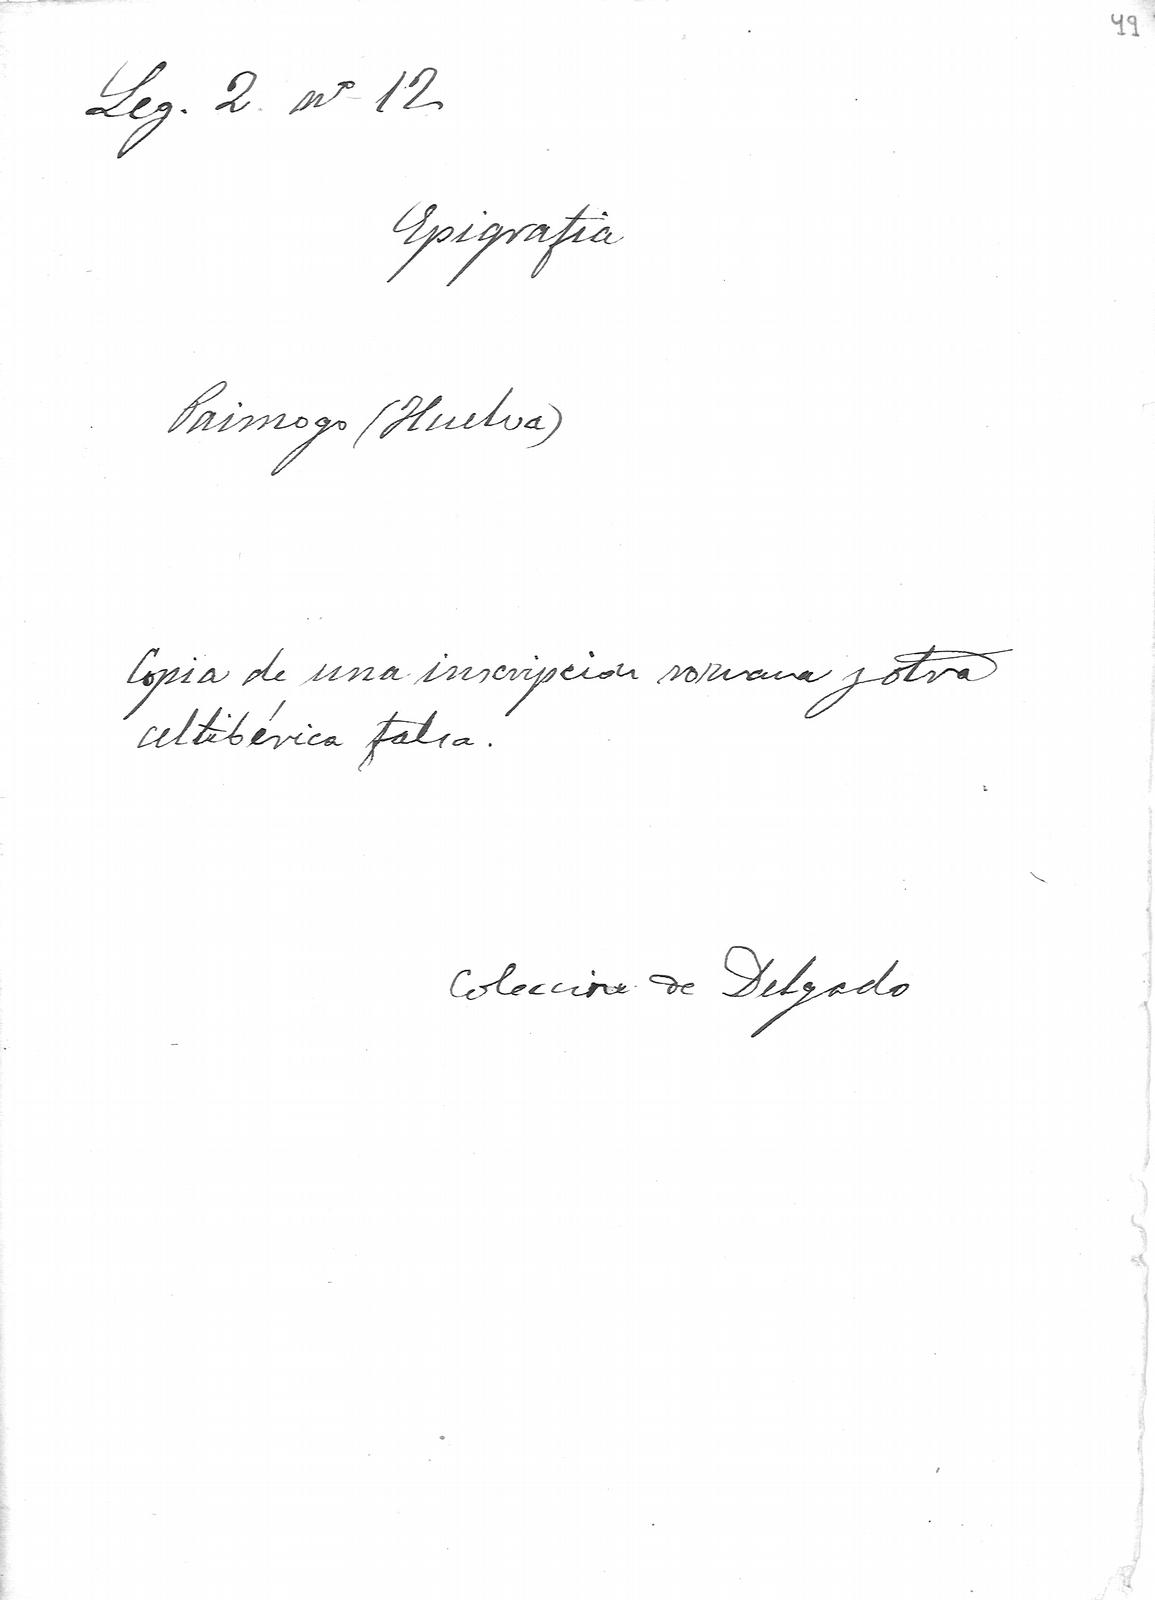 49
Leg. 2 nº 12
Epigrafia
Paimogo (Huelva)
Copia de una inscripcion romana y otra
celtibérica falsa.
Coleccion de Delgado